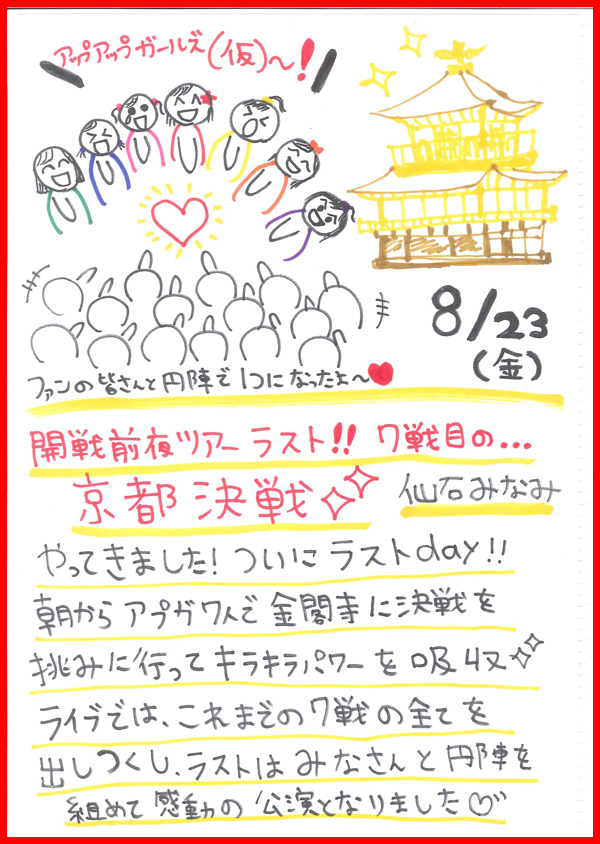 アップアップガールズ(仮)〜!
8/23
(金)
ファンの皆さんと円陣で1つになったよ〜♥
開戦前夜ツアーラスト!! 7戦目の...
京都決戦
仙石みなみ
やってきました!ついにラストday!!
朝からアプガ7人で金閣寺に決戦を
挑みに行ってキラキラパワーを吸収
ライブでは、これまでの7戦の全てを
出しつくし、ラストはみなさんと円陣を
組めて感動の公演となりました♡